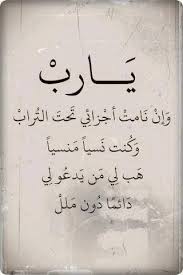 يَـــاربْ
وَإنْ نَامتْ أجْزائي تَحتَ التُرابْ
وَكُنت نَسياً مَنسياً
هَب لي مَن يَدعُو لي
دَائمًا دُون مَللْ